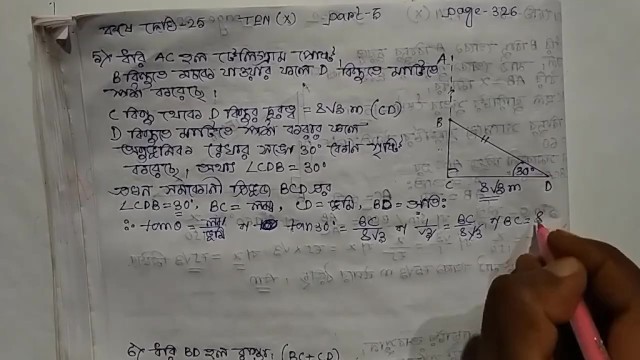 কষে দেখি-25 TEN (X) part-5 page-326
5) ধরি AC হল টেলিগ্রাম পোস্ট,
B বিন্দুতে মচকে যাওয়ার ফলে D বিন্দুতে মাটিতে
স্পর্শ করেছে।
C বিন্দু থেকে D বিন্দুর দূরত্ব = 8√3 m (CD)
D বিন্দুতে মাটিতে স্পর্শ করার ফলে
অনুভূমিক রেখার সঙ্গে 30° কোণ সৃষ্টি
করেছে, অর্থাৎ ∠CDB = 30°
এখন সমকোণী ত্রিভুজ BCD এর
∠CDB = 30°, BC = লম্ব, CD = ভূমি, BD = অতি:
∴ tanθ = লম্ব/ভূমি বা tan30° = BC/8√3 বা 1/√3 = BC/8√3 বা BC = 8
A
B
30°
C 8√3 m D
6) ধরি BD হল (BC+CD)